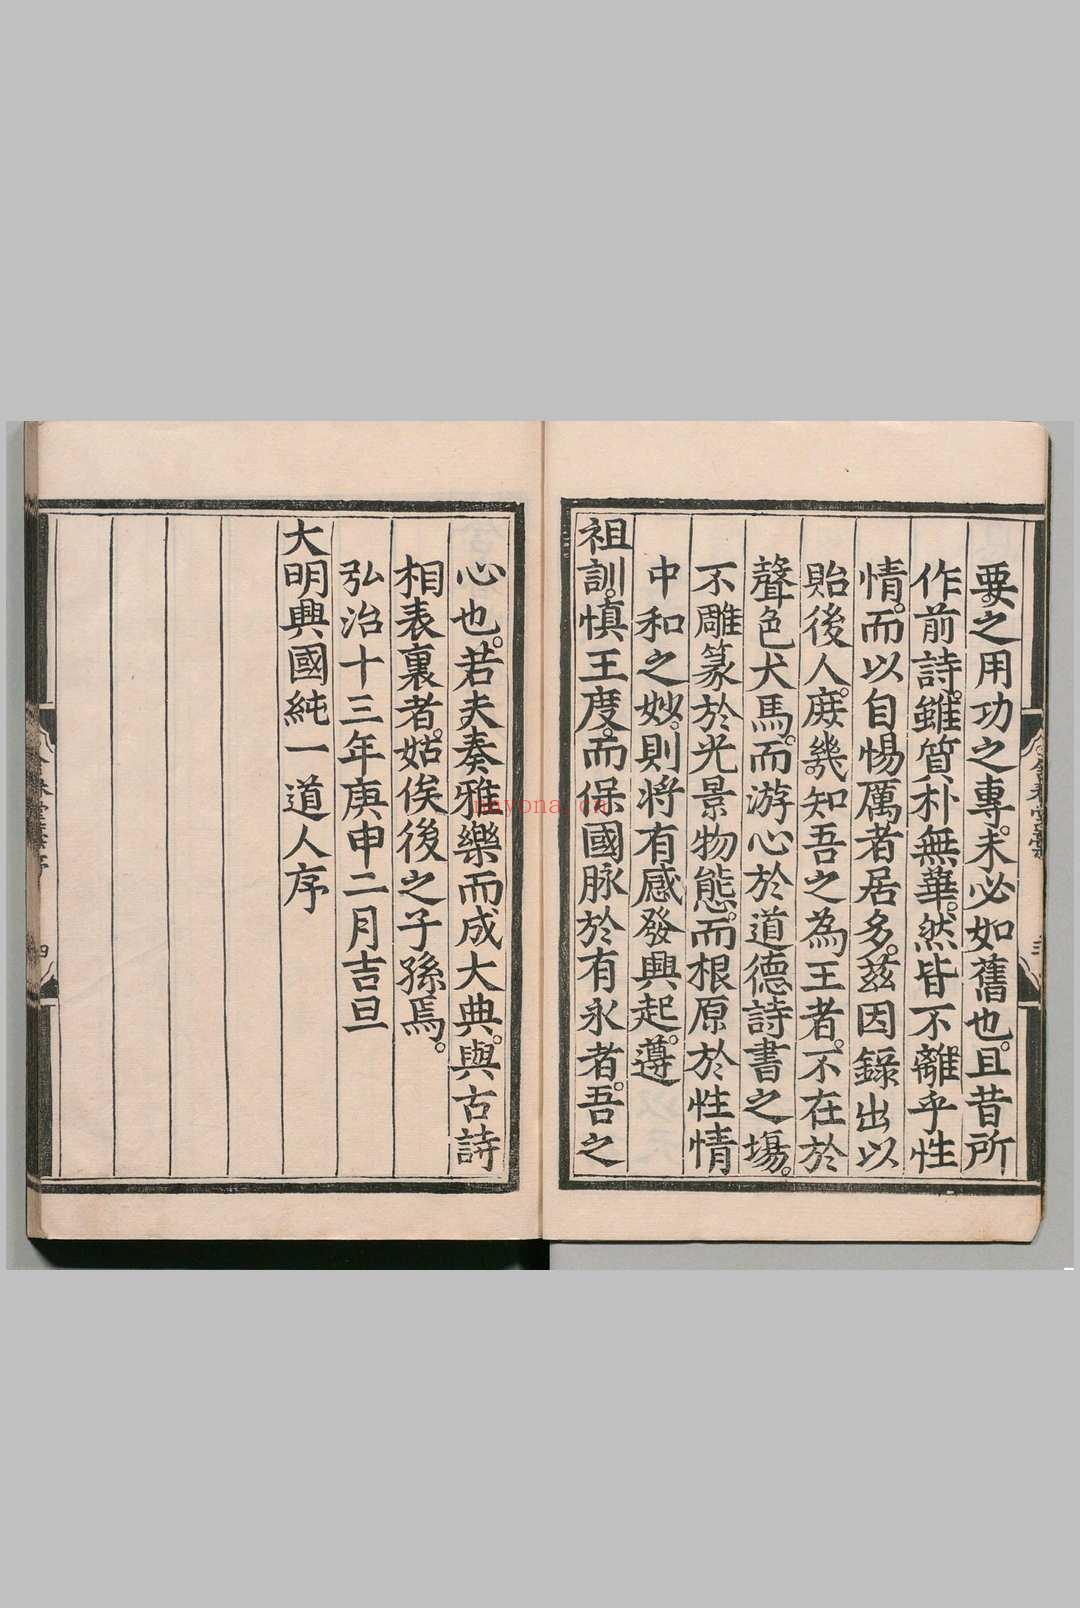 要之用功之專。未必如舊也。且昔所
作前詩。雖質朴無華。然皆不離乎性
情。而以自惕厲者居多。茲因錄出以
貽後人。庶幾知吾之為王者。不在於
聲色犬馬。而游心於道德詩書之場。
不雕篆於光景物態。而根原於性情
中和之妙。則將有感發興起。遵
祖訓。慎王度。而保國脉於有永者。吾之
心也。若夫奏雅樂而成大典。與古詩
相表裏者。姑俟後之子孫焉。
弘治十三年庚申二月吉旦
大明興國純一道人序